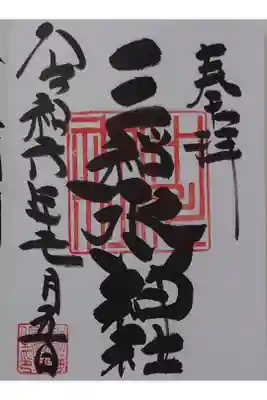 奉拝
三 水神社
令和六年七月五日